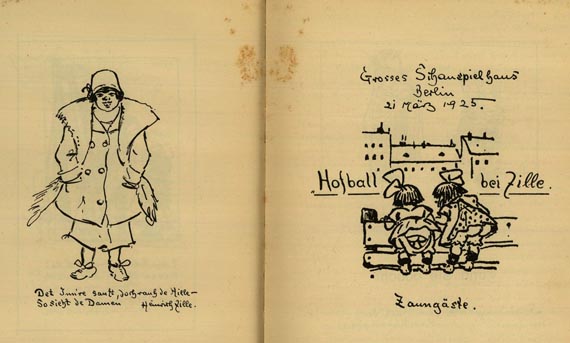 Det Inn're sanft, doch rauh de Hille –
So sieht de Damen Heinrich Zille.
Grosses Schauspielhaus
Berlin
21 März 1925.
"Hofball" bei Zille.
Zaungäste.